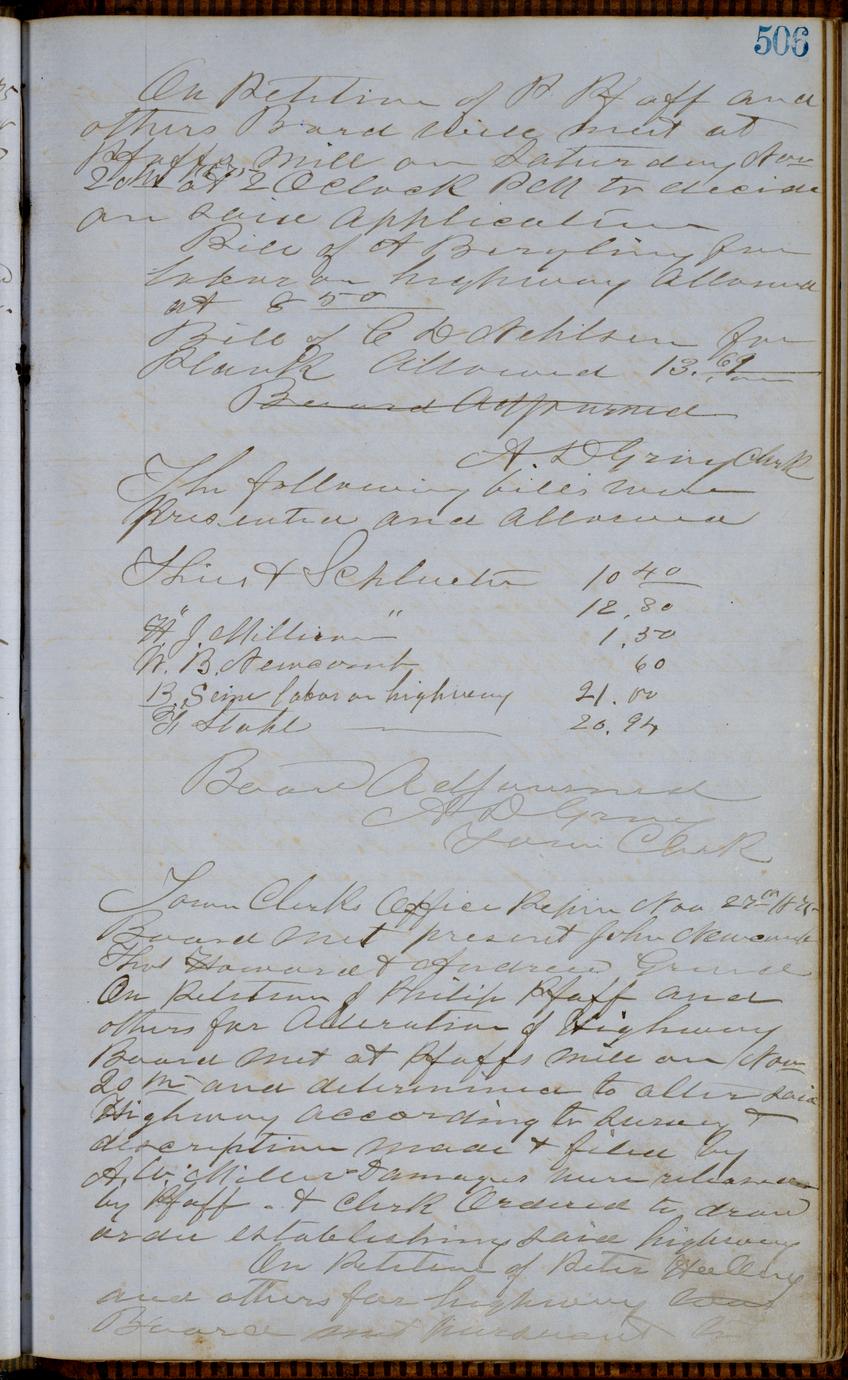 506
On Petition of P Pfaff and
others Board will meet at
Pfaffs mill on Saturday Nov
20th at 2 OClock PM to decide
on said application
Bill of A for
labor on highway allowed
at 8 50
Bill of C D Nehlsen for
Plank Allowed 13.69
Board Adjourned
A. D Gray Clerk
The following bills were
presented and allowed
Thies & Schlueter 10 40
" " 12,80
H J. Millisen 1,50
W. B. Newcomb 60
B. Seine labor on highway 21.00
F Stahl 20.94
Board Adjourned
A D Gray
Town Clerk
Town Clerks Office Repin Nov 27th
Board met present John Newcomb
Thos Howard & Andrew
On Petition of Philip Pfaff and
others for Alteration of Highway
Board met at Pfaffs mill on Nov
20th and determined to alter said
Highway according to survey &
description made & filed by
A. W. Miller Damages were released
by Pfaff. & Clerk Ordered to draw
order establishing said highway
On Petition of Peter
and others for highway
Board met pursuant to